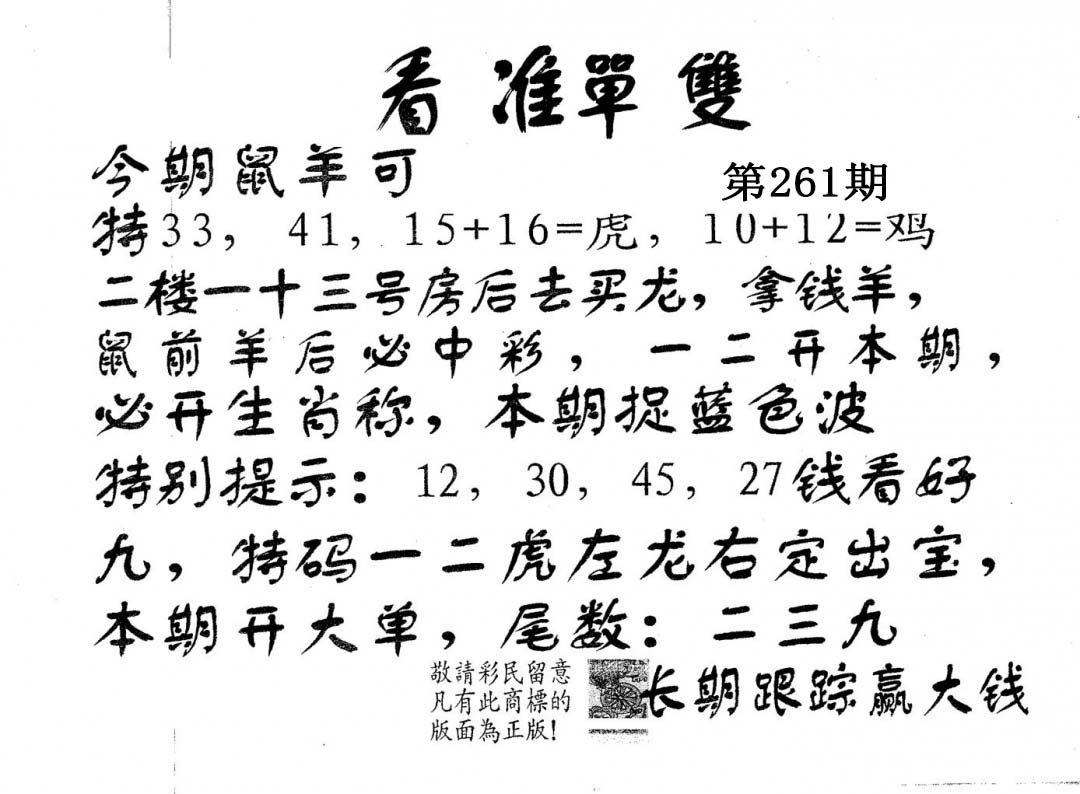 看准單雙
今期鼠羊可
第261期
特33，41，15+16=虎，10+12=鸡
二楼一十三号房后去买龙，拿钱羊，
鼠前羊后必中彩，一二开本期，
必开生肖称，本期捉蓝色波
特别提示：12，30，45，27钱看好
九，特码一二虎左龙右定出宝，
本期开大单，尾数：二三九
敬請彩民留意
凡有此商標的
版面為正版!
长期跟踪赢大钱